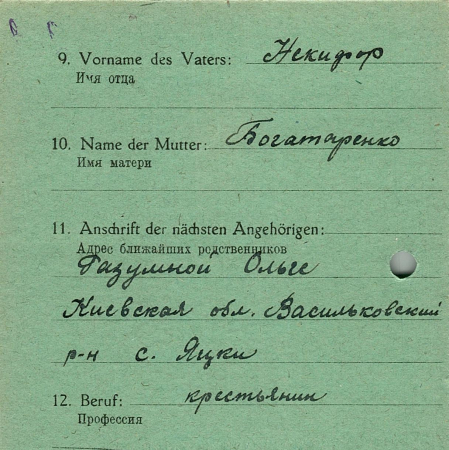 9. Vorname des Vaters: Некифор
Имя отца
10. Name der Mutter: Богатаренко
Имя матери
11. Anschrift der nächsten Angehörigen:
Адрес ближайших родственников
Разумной Ольге
Киевская обл. Васильковский
р-н с. Яцки
12. Beruf: крестьянин
Профессия